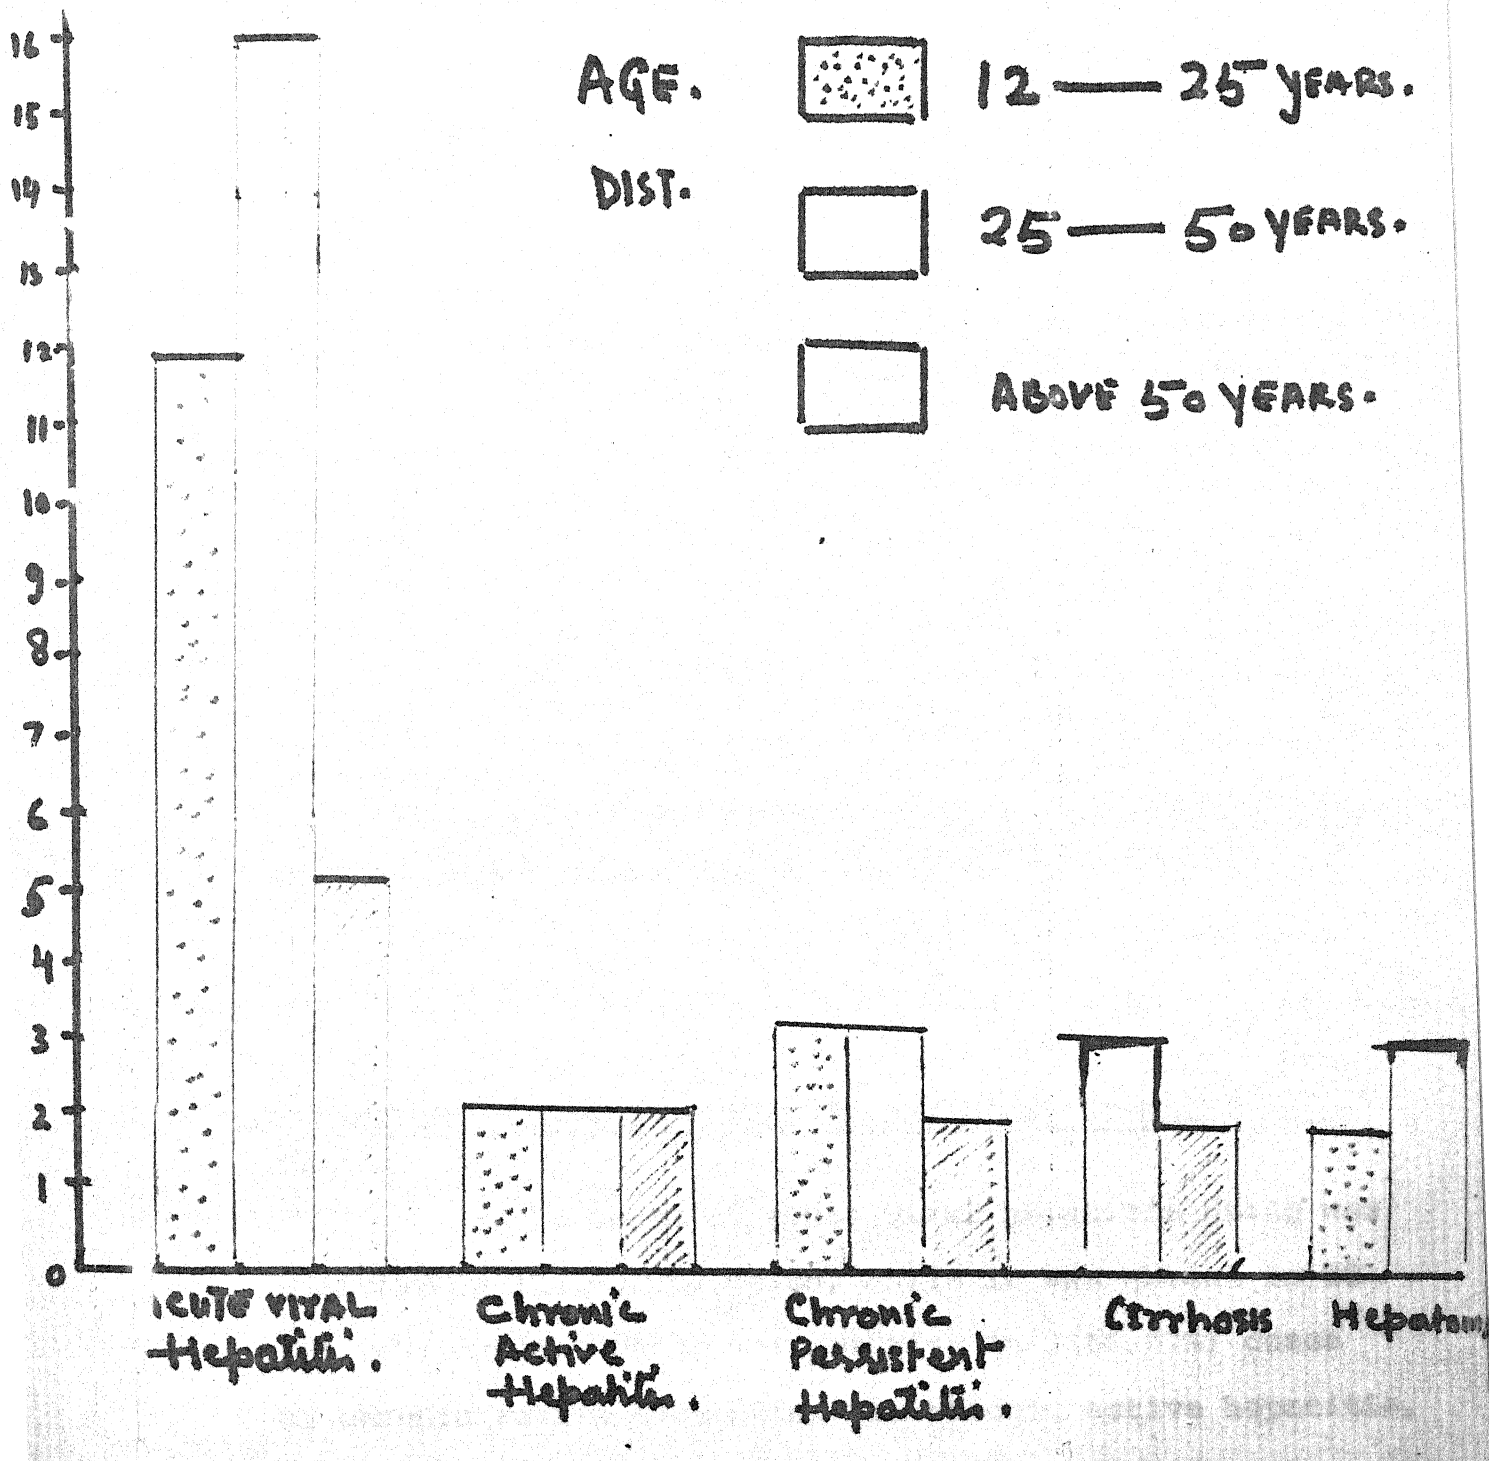 16
15
14
13
12
11
10
9
8
7
6
5
4
3
2
1
0
AGE.
DIST.
12 — 25 YEARS.
25 — 50 YEARS.
ABOVE 50 YEARS.
ACUTE VITAL
Hepatitis.
Chronic
Active
Hepatitis.
Chronic
Persistent
Hepatitis.
Cirrhosis
Hepatoma